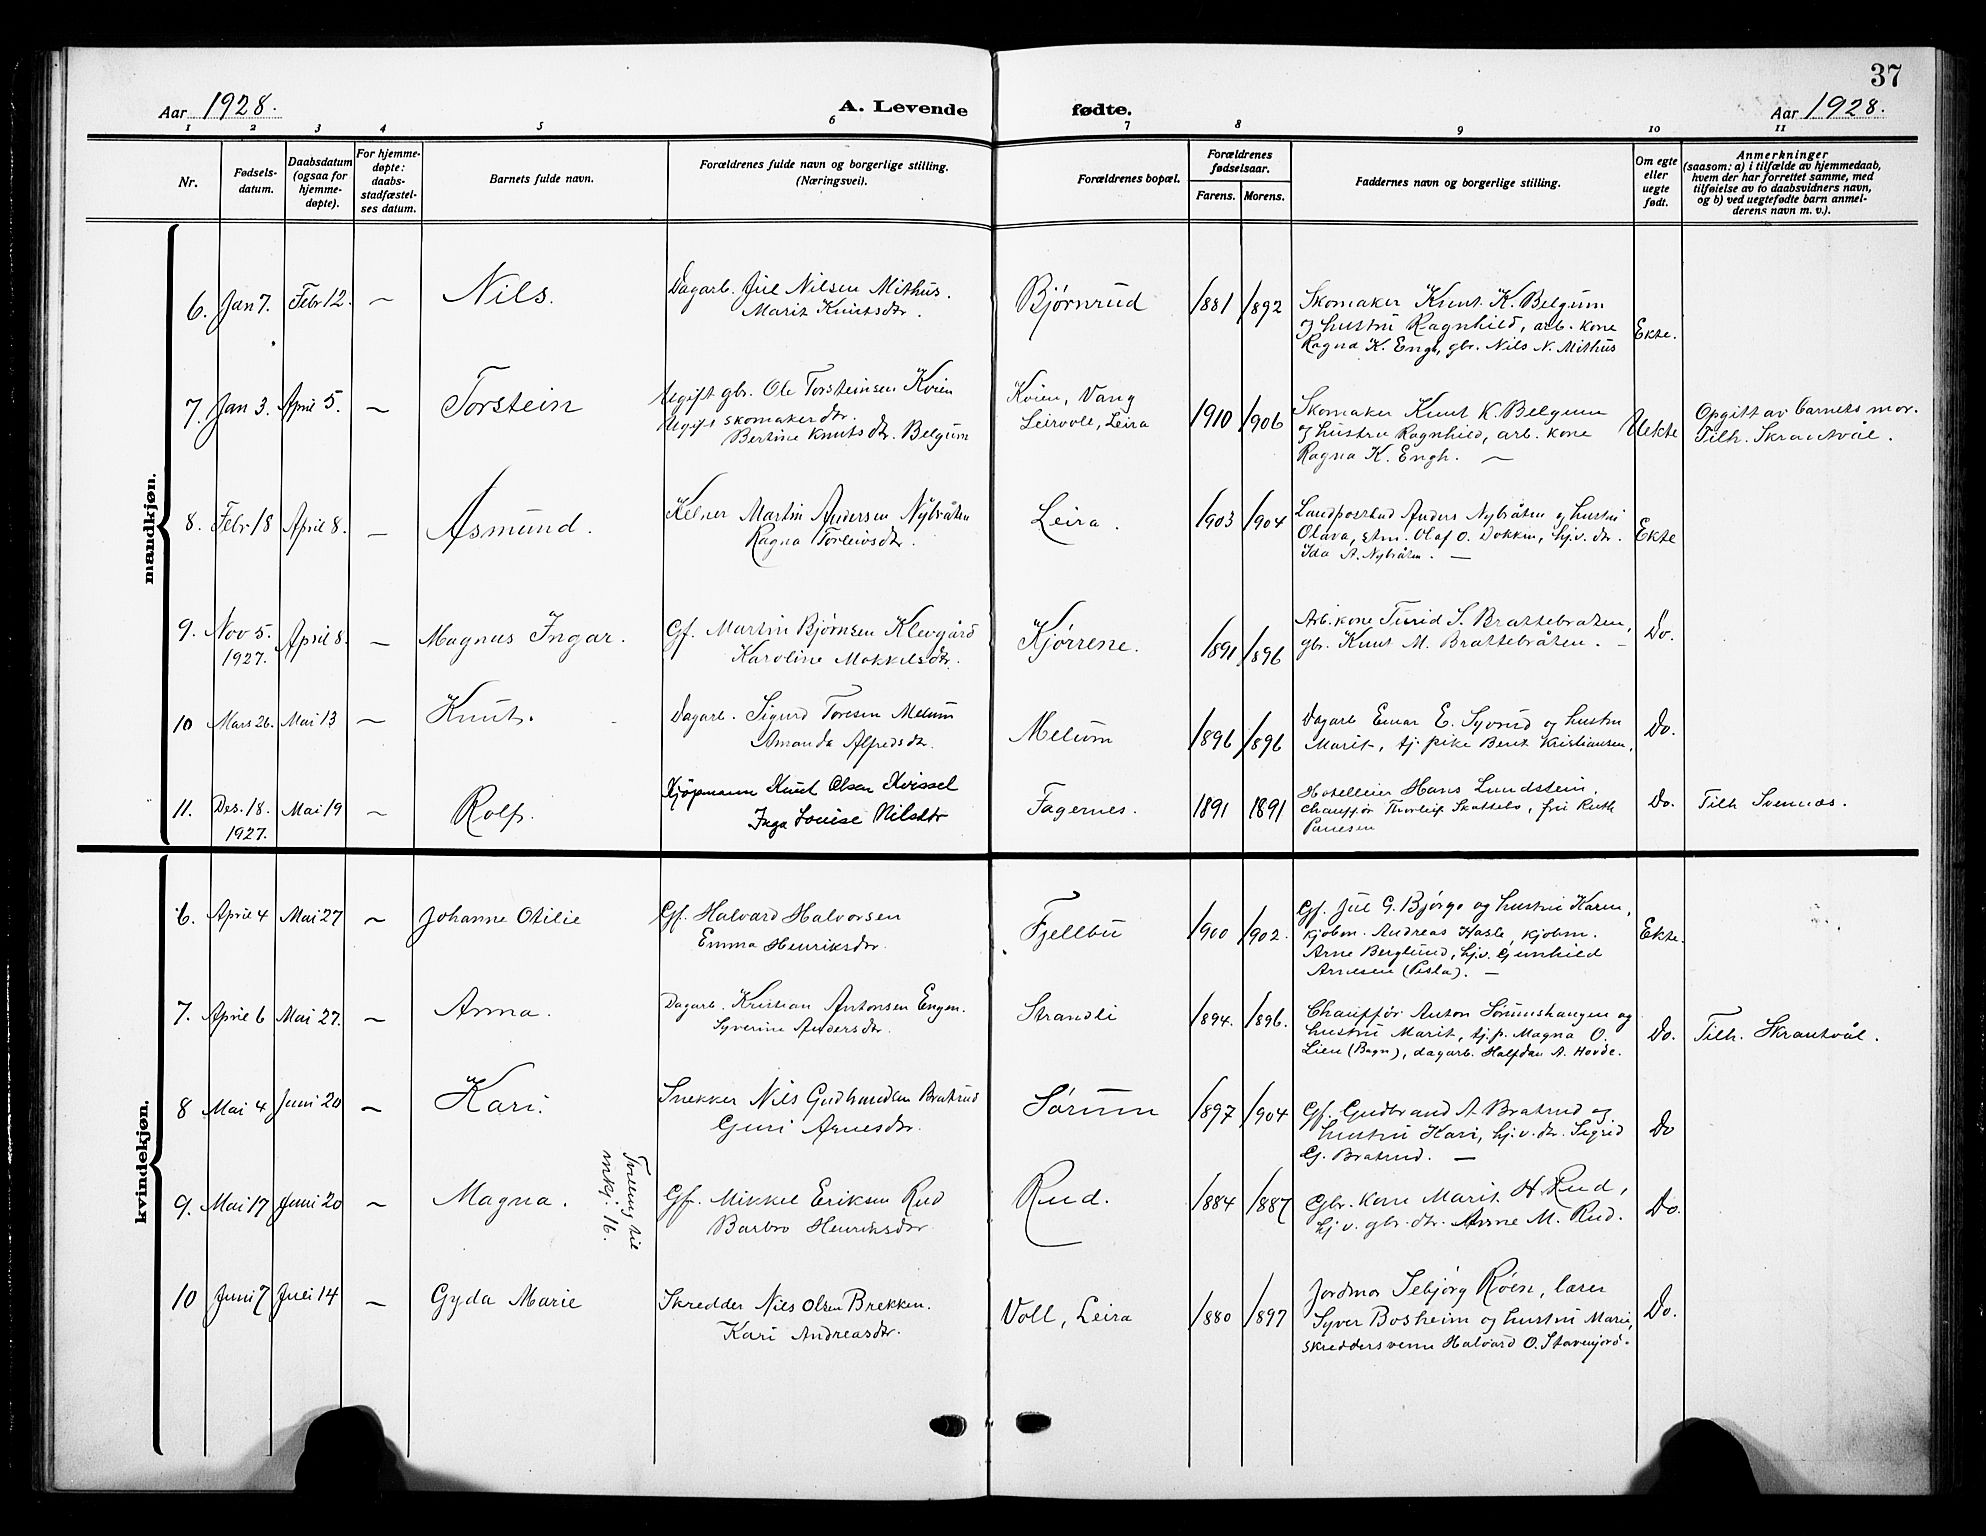 37
Aar 1928.
A. Levende fødte.
Aar 1928.
1 2 3 4 5 6 7 8 9 10 11
Nr.
Fødsels-
datum.
Daabsdatum
(ogsaa for
hjemme-
døpte).
For hjemme-
døpte:
daabs-
stadfæstel-
ses datum.
Barnets fulde navn.
Forældrenes fulde navn og borgerlige stilling.
(Næringsvei).
Forældrenes bopæl.
Forældrenes
fødselsaar.
Farens. Morens.
Faddernes navn og borgerlige stilling.
Om egte
eller
uegte
født.
Anmerkninger
(saasom: a) i tilfælde av hjemmedaab,
hvem der har forrettet samme, med
tilføielse av to daabsvidners navn,
og b) ved uegtefødte barn anmel-
derens navn m. v.).
mandkjøn.
6. Jan 7. Febr 12. — Nils.
Dagarb. Jul Nilsen Mithus.
Marit Knutsdtr.
Bjørnrud 1881 1892
Skomaker Knut K. Belgum
og hustru Ragnhild, arb. kone
Ragna K. Engh, gbr. Nils N. Mithus
Ekte.
7. Jan 3. April 5. — Torstein
Ugift gbr. Ole Torsteinsen Kvien
Ugift skomakerdtr.
Bertine Knutsdtr. Belgum
Kvien, Vang
Leirvole, Leira
1910 1906
Skomaker Knut K. Belgum
og hustru Ragnhild, arb. kone
Ragna K. Engh. —
Uekte
Opgitt av barnets mor.
Tilh. Skrautvål.
8. Febr 18 April 8. — Asmund.
Kelner Martin Andersen Nybråten
Ragna Torleivsdtr.
Leira. 1903 1904
Landpostbud Anders Nybråten og hustru
Olava, stm. Olaf O. Dokken, hj.v. dtr.
Ida A. Nybråten. —
Ekte
9. Nov 5. 1927. April 8. — Magnus Ingar.
Gf. Martin Bjørnsen Klevgård
Karoline Mokkelsdtr.
Kjørrene. 1891 1896
Arb. kone Turid S. Brattebråten,
gbr. Knut M. Brattebråten. —
Do.
10 Mars 26. Mai 13 — Knut.
Dagarb. Sigurd Toresen Melum
Amanda Alfredsdtr.
Melum 1896 1896
Dagarb Einar E. Syvrud og hustru
Marit, tj. pike Berit Kristiansen.
Do.
11. Des. 18. 1927. Mai 19 — Rolf.
Kjøpmann Knut Olsen Kvissel
Inga Louise Nilsdtr
Fagernes. 1891 1891
Hotelleier Hans Lundstein,
chauffør Thorleif Skattebo, frn Ruth
Paulsen
Do.
Tilh. Svennes.
kvindekjøn.
6. April 4 Mai 27 — Johanne Otilie
Gf. Halvard Halvorsen
Emma Henriksdtr
Fjellbu 1900 1902.
Gf. Jul G. Bjørgo og hustru Karen,
kjøbm. Andreas Hasle, kjøbm.
Arne Berglund, hj.v. Gunhild
Arnesen (Pesla). —
Ekte.
7. April 6 Mai 27. — Anna.
Dagarb. Kristian Antonsen Engen.
Syverine Andersdtr.
Strandli 1894. 1896.
Chauffør Anton Sørumshaugen og
hustru Marit, tj. p. Magna O.
Lien (Bagn), dagarb. Halfdan A. Hovde.
Do.
Tilh. Skrautvål.
8 Mai 4 Juni 20 — Kari.
Snekker Nils Gudbrandsen Bratrud
Guri Arnesdtr.
Sørum 1897 1904
Gf. Gudbrand A. Bratrud og
hustru Kari, hj.v. dtr. Sigrid
G. Bratrud. —
Do
9. Mai 17 Juni 20 — Magna.
Tvilling til
mkj. 16.
Gf. Mikkel Eriksen Rud
Barbro Henriksdtr
Rud. 1884 1887
Gbr. kone Marit H. Rud,
hj. v. gbr. dtr. Anne M. Rud.
Do.
10 Juni 7 Juli 14 — Gyda Marie
Skredder Nils Olsen Brekken.
Kari Andreasdtr.
Voll, Leira 1880 1897
Jordmor Sebjørg Røen, lærer
Syver Bosheim og hustru Marie,
skreddersvenn Halvard O. Stavenjord.
Do.